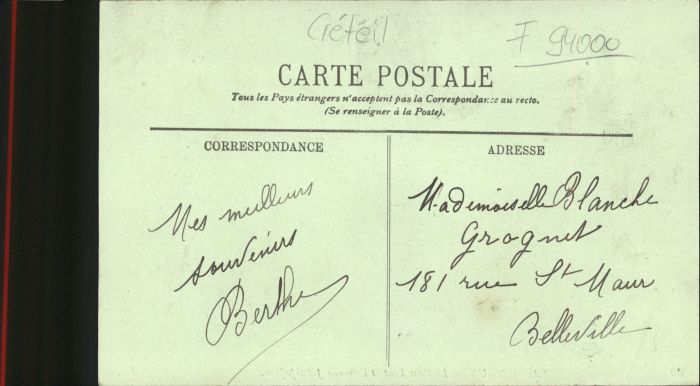 Créteil
F 94000
CARTE POSTALE
Tous les Pays étrangers n'acceptent pas la Correspondance au recto.
(Se renseigner à la Poste).
CORRESPONDANCE
Mes meilleurs
souvenirs
Berthe
ADRESSE
Mademoiselle Blanche
Grognet
181 rue St Maur
Belleville